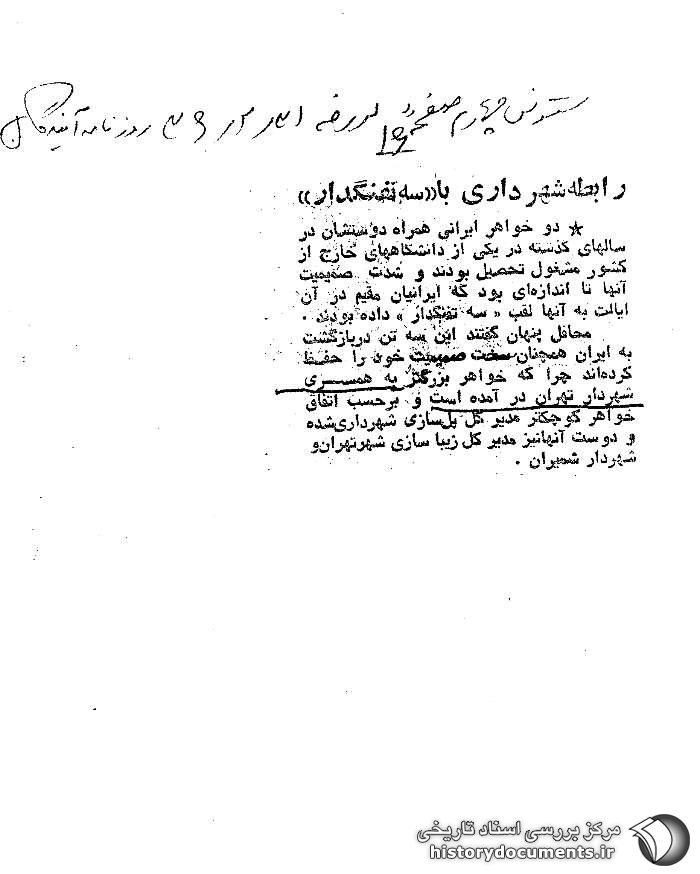 ستون چهارم صفحه 16 مورخه ۳۶ روزنامه آیندگان
رابطه شهرداری با «سه تفنگدار»
★ دو خواهر ایرانی همراه دوستشان در
سالهای گذشته در یکی از دانشگاههای خارج از
کشور مشغول تحصیل بودند و شدت صمیمیت
آنها تا اندازه‌ای بود که ایرانیان مقیم در آن
ایالت به آنها لقب « سه تفنگدار » داده بودند .
محافل پنهان گفتند این سه تن دربازگشت
به ایران همچنان سخت صمیمیت خود را حفظ
کرده‌اند چرا که خواهر بزرگتر به همسری
شهردار تهران در آمده است و برحسب اتفاق
خواهر کوچکتر مدیر کل پل‌سازی شهرداری‌شده
و دوست آنهانیز مدیر کل زیبا سازی شهرتهران‌و
شهردار شمیران .
مرکز بررسی اسناد تاریخی
historydocuments.ir